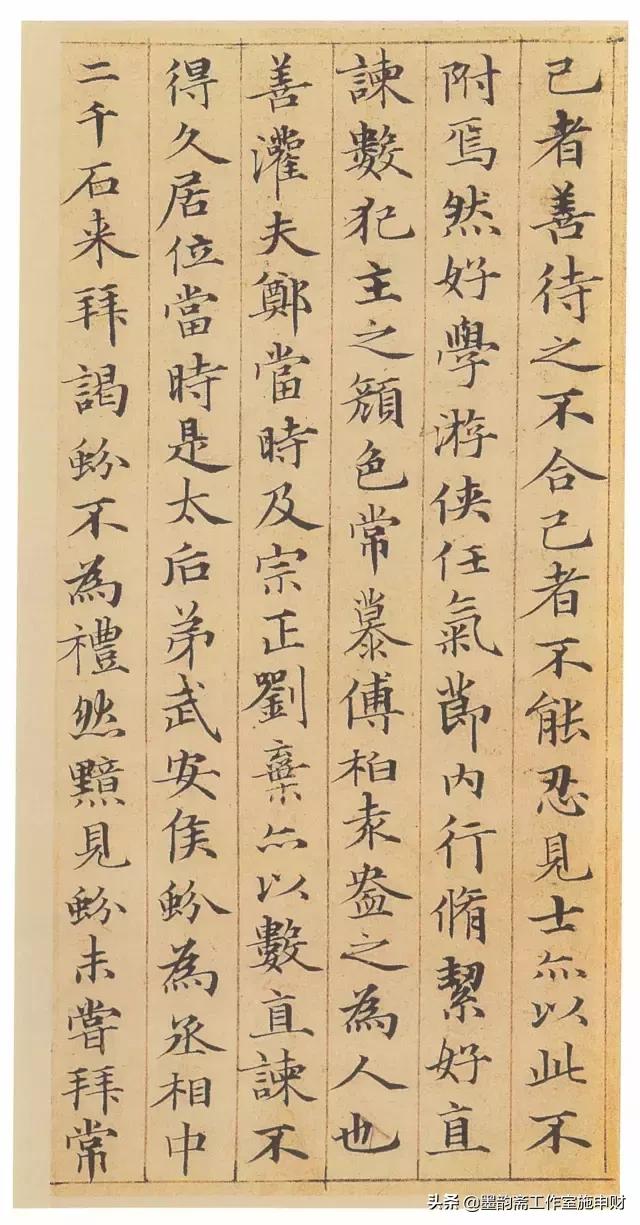 己者善待之不合己者不能忍見士亦以此不
附焉然好學游俠任氣節内行脩絜好直
諫數犯主之顏色常慕傅柏袁盎之為人也
善灌夫鄭當時及宗正劉棄亦以數直諫不
得久居位當時是太后弟武安侯蚡為丞相中
二千石来拜謁蚡不為禮然黯見蚡未嘗拜常
头条 @墨韵斋工作室施申财